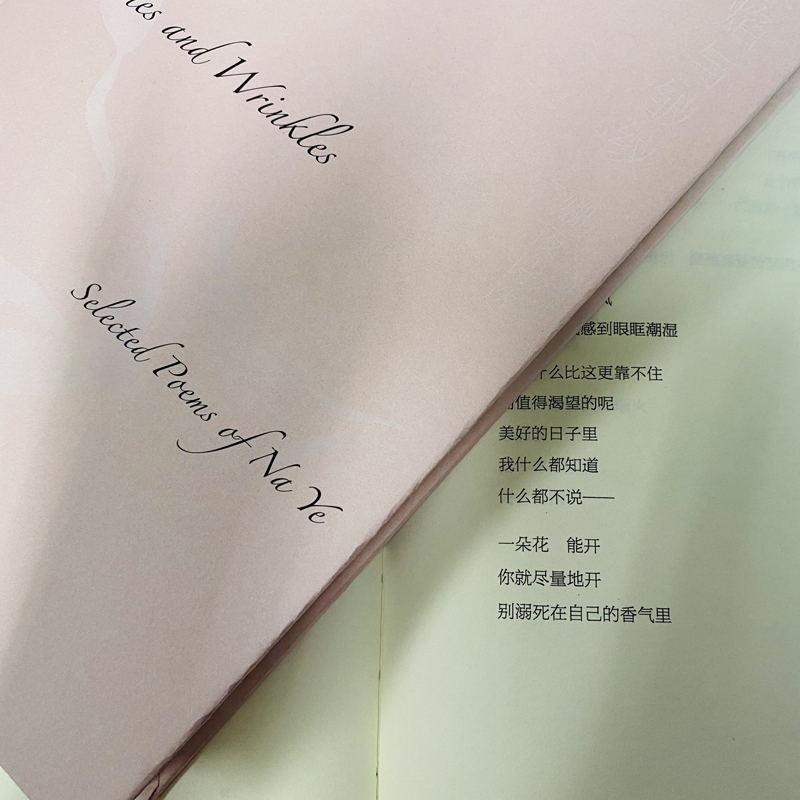 and Wrinkles
Selected Poems of Na Ye
感到眼眶潮湿
什么比这更靠不住
值得渴望的呢
美好的日子里
我什么都知道
什么都不说——
一朵花　能开
你就尽量地开
别溺死在自己的香气里